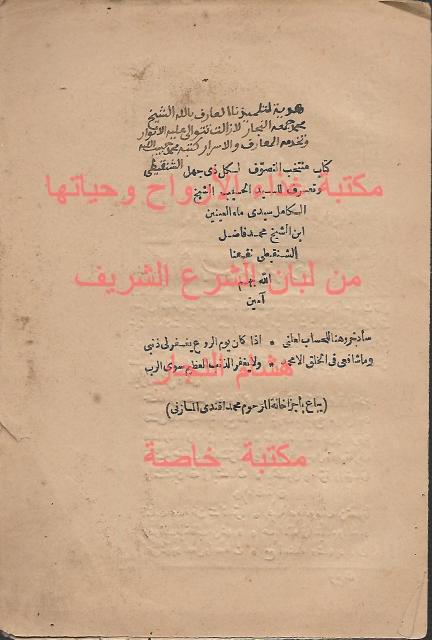 هدية لتلميذنا العارف بالله الشيخ
محمد جمعه النجار لازالت تتوالى عليه الانوار
وتخدمه المعارف والاسرار كتبه محمد حبيب الله
الشنقيطي
كتاب منتخب التصوف لكل ذى جهل
وتعرف للسيد الحسيب الشيخ
الكامل سيدى ماء العينين
ابن الشيخ محمد فاضل
الشنقيطى نفعنا
الله بهم
آمين
مكتبة غذاء الارواح وحياتها
من لبان الشرع الشريف
هشام النجار
مكتبة خاصة
للحساب لعلنى * اذا كان يوم الروع يغفر لى ذنبى
وماشافعى فى الخلق الا محمد * ولا يغفر الذنب العظيم سوى الرب
(يباع بأجزاخانة المرحوم محمد افندى المازنى)